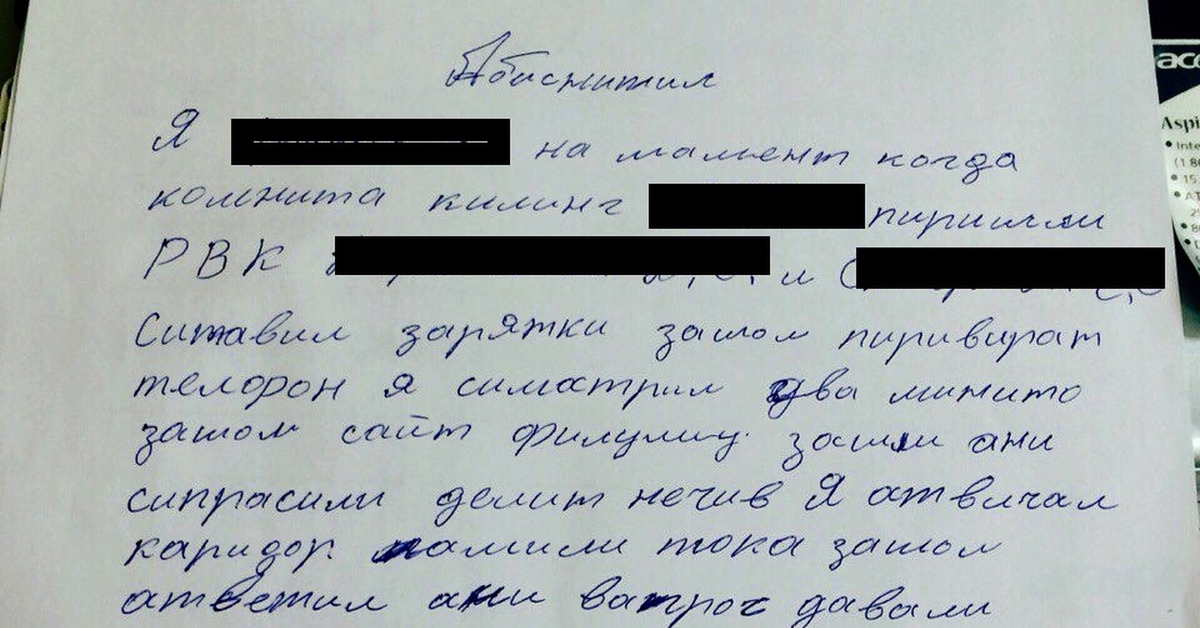 Абиснитил
Я на мамент когда
комнита килинг пиришли
РВК и
Ситавил зарятки зашол пиривират
телорон я симатрил два минито
зашол сайт филулиц. зашли ани
сипрасили делит нечив Я атвичал
каридор памили тока зашол
атветил ани вапрос давали
ace
Aspi
• Inte
(1 86
• 15
• AT